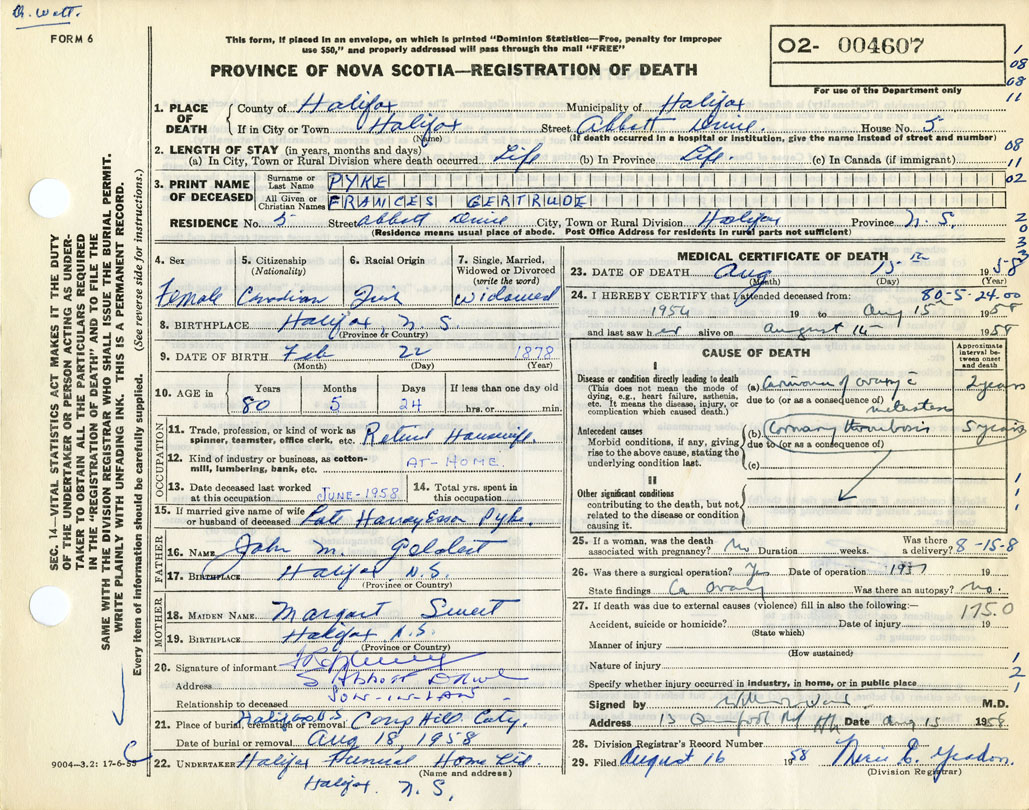 Dr. Watt.
FORM 6
This form, if placed in an envelope, on which is printed "Dominion Statistics—Free, penalty for improper
use $50," and properly addressed will pass through the mail "FREE"
PROVINCE OF NOVA SCOTIA—REGISTRATION OF DEATH
O2- 004607
For use of the Department only
1
08
08
11
1. PLACE OF DEATH
County of Halifax Municipality of Halifax
If in City or Town Halifax Street Abbott Drive. House No. 5
(Name) (If death occurred in a hospital or institution, give the name instead of street and number)
2. LENGTH OF STAY (in years, months and days)
08
(a) In City, Town or Rural Division where death occurred Life (b) In Province Life. (c) In Canada (if immigrant)
11
3. PRINT NAME OF DECEASED
Surname or Last Name PYKE
02
All Given or Christian Names FRANCES GERTRUDE
RESIDENCE No. 5 Street Abbott Drive City, Town or Rural Division Halifax Province N.S.
(Residence means usual place of abode. Post Office Address for residents in rural parts not sufficient)
2
0
3
3
SEC. 14—VITAL STATISTICS ACT MAKES IT THE DUTY
OF THE UNDERTAKER OR PERSON ACTING AS UNDER-
TAKER TO OBTAIN ALL THE PARTICULARS REQUIRED
IN THE "REGISTRATION OF DEATH" AND TO FILE THE
SAME WITH THE DIVISION REGISTRAR WHO SHALL ISSUE THE BURIAL PERMIT.
WRITE PLAINLY WITH UNFADING INK. THIS IS A PERMANENT RECORD.
Every item of information should be carefully supplied. (See reverse side for instructions.)
4. Sex
Female
5. Citizenship
(Nationality)
Canadian
6. Racial Origin
7. Single, Married,
Widowed or Divorced
(write the word)
Widowed
8. BIRTHPLACE Halifax, N.S.
(Province or Country)
9. DATE OF BIRTH Feb 22 1878
(Month) (Day) (Year)
10. AGE in
Years Months Days If less than one day old
80 5 24 hrs. or min.
OCCUPATION
11. Trade, profession, or kind of work as
spinner, teamster, office clerk, etc. Retired Housewife
12. Kind of industry or business, as cotton-
mill, lumbering, bank, etc. AT-HOME.
13. Date deceased last worked
at this occupation JUNE-1958
14. Total yrs. spent in
this occupation
15. If married give name of wife
or husband of deceased Late Harray Pyke.
FATHER
16. NAME John M. Geldert
17. BIRTHPLACE Halifax N.S.
(Province or Country)
MOTHER
18. MAIDEN NAME Margaret
19. BIRTHPLACE Halifax N.S.
(Province or Country)
20. Signature of informant
Address 5 Abbott Drive
Relationship to deceased SON-IN-LAW
21. Place of burial, cremation or removal Halifax N.S. Camp Hill Cety.
Date of burial or removal Aug 18, 1958
22. UNDERTAKER Halifax Funeral Home Ltd.
(Name and address)
Halifax. N.S.
9004—3.2: 17-6-55
MEDICAL CERTIFICATE OF DEATH
23. DATE OF DEATH Aug 15th 1958
(Month) (Day) (Year)
24. I HEREBY CERTIFY that I attended deceased from: 80-5-24.00
1954 19 to Aug 15 1958
and last saw her alive on August 14 1958
CAUSE OF DEATH
Approximate
interval be-
tween onset
and death
I
Disease or condition directly leading to death
(This does not mean the mode of
dying, e.g., heart failure, asthenia,
etc. It means the disease, injury, or
complication which caused death.)
(a) Carcinoma of ovary c̄ 2 years
due to (or as a consequence of)
metastases
Antecedent causes
Morbid conditions, if any, giving
rise to the above cause, stating the
underlying condition last.
(b) Coronary thrombosis 5 years
due to (or as a consequence of)
(c)
II
Other significant conditions
contributing to the death, but not
related to the disease or condition
causing it.
1
1
1
25. If a woman, was the death
associated with pregnancy? No Duration weeks. Was there
a delivery? 8-15-8
26. Was there a surgical operation? Yes Date of operation 1957 19
State findings Ca Ovary Was there an autopsy? No.
27. If death was due to external causes (violence) fill in also the following:—
175.0
Accident, suicide or homicide? Date of injury 19
(State which)
Manner of injury
(How sustained)
Nature of injury
1
2
1
Specify whether injury occurred in industry, in home, or in public place
Signed by M.D.
Address 13 Rd Hfx Date Aug 15 1958
28. Division Registrar's Record Number
29. Filed August 16 1958
(Division Registrar)